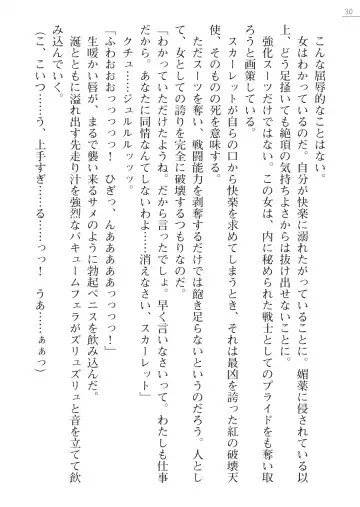 30
こんな屈辱的なことはない。
女はわかっているのだ。自分が快楽に溺れたがっていることに。媚薬に侵されている以
上、どう足掻いても絶頂の気持ちよさからは抜け出せないことに。
強化スーツだけではない。この女は、内に秘められた戦士としてのプライドをも奪い取
ろうと画策している。
スカーレットが自らの口から快楽を求めてしまうとき、それは最凶を誇った紅の破壊天
使、そのものの死を意味する。
ただスーツを奪い、戦闘能力を剥奪するだけでは飽き足らないというのだろう。人とし
て、女としての誇りを完全に破壊するつもりなのだ。
「わかっていただけたようね。だから言ったでしょ。早く言いなさいって。わたしも仕事
だから。あなたに同情なんてしないわよ……消えなさい、スカーレット」
クチュ……ジュルルルッッッ。
「ふわおおおっっっっっ！　ひぎっ、んああああああっっっっ！」
生暖かい唇が、まるで襲い来るサメのように勃起ペニスを飲み込んだ。
涎とともに溢れ出す先走り汁を強烈なバキュームフェラがズリュズリュと音を立てて飲
み込んでいく。
（こ、こいつ……う、上手すぎ……る……っっ！　うあ……ぁぁっ）